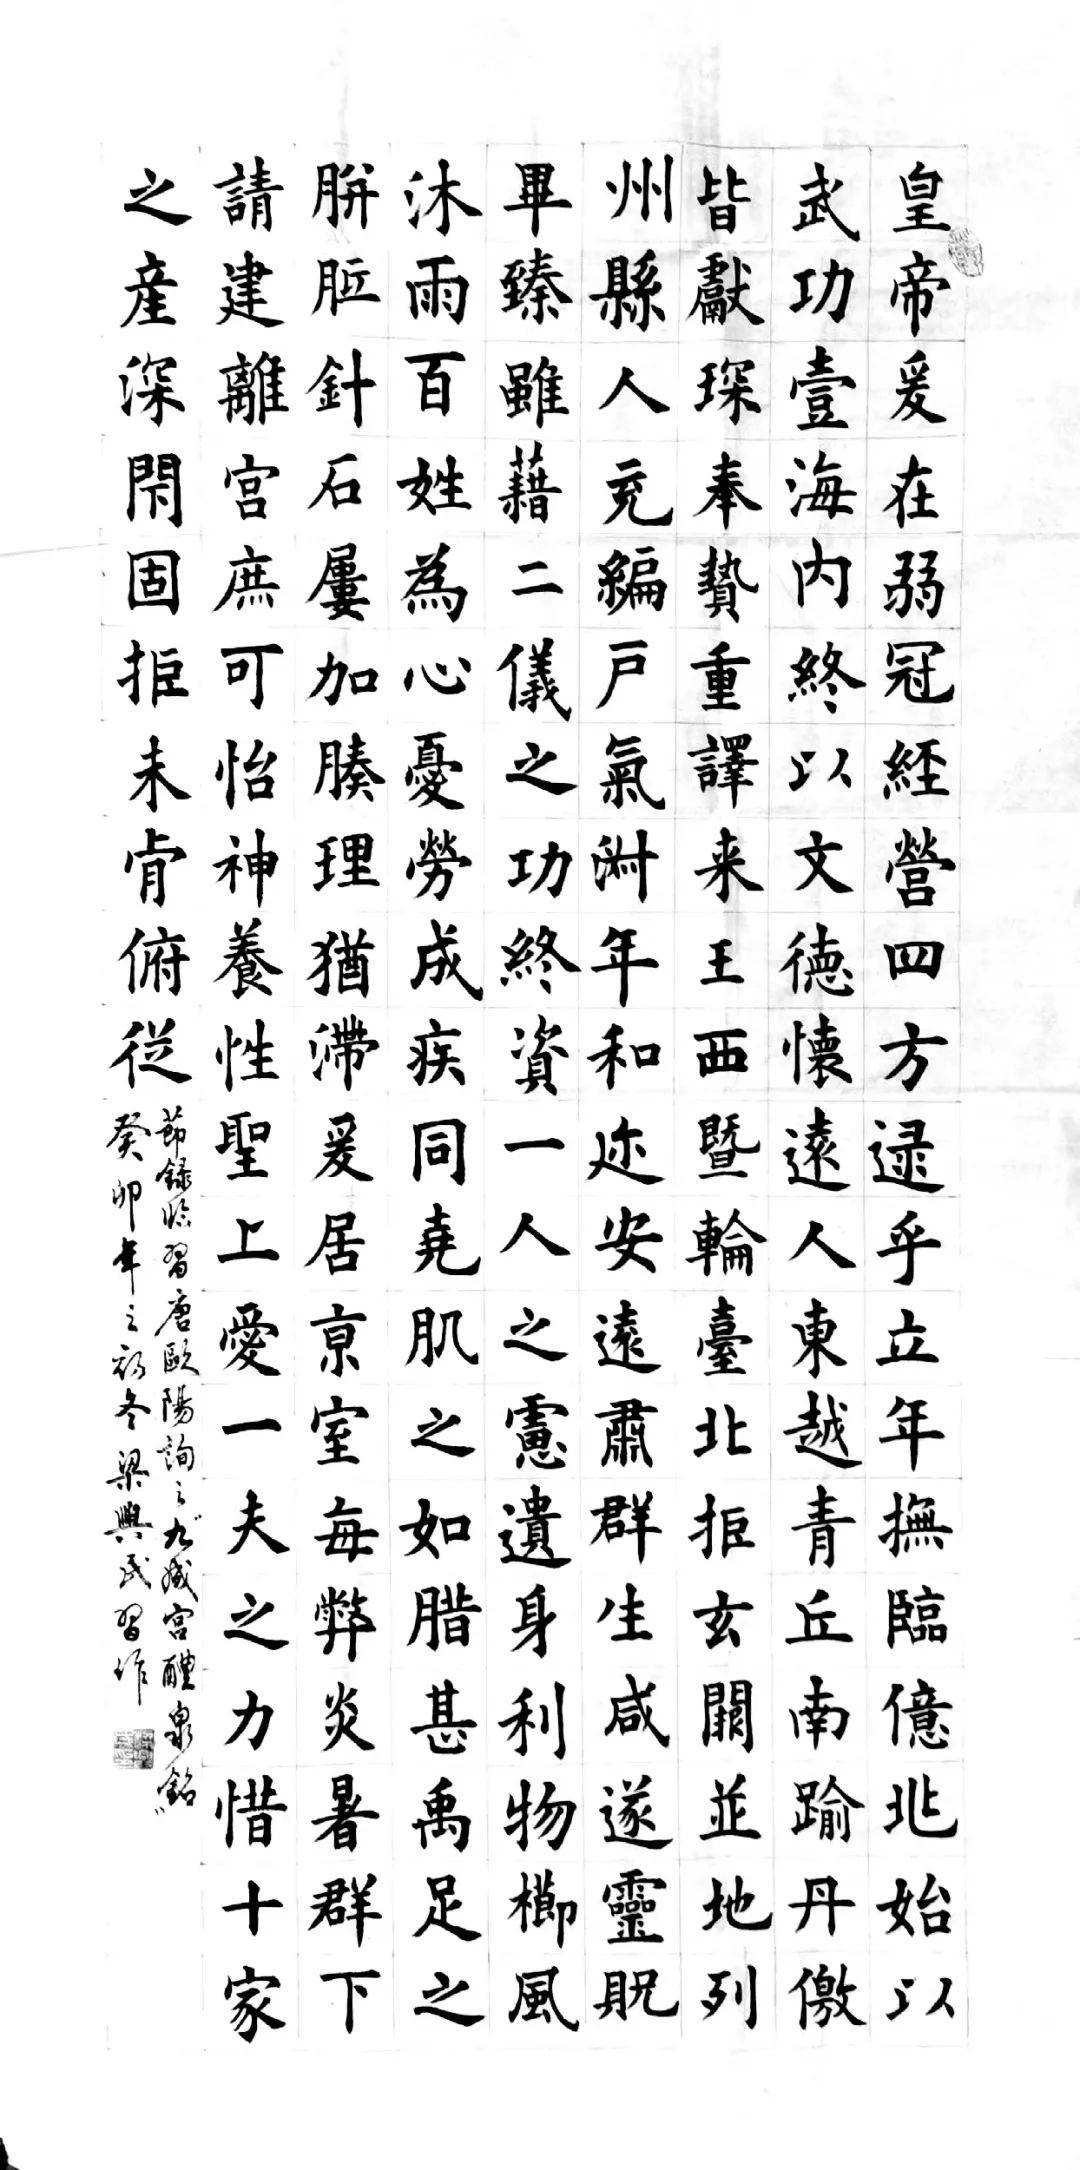 皇帝爰在弱冠經營四方逯乎立年撫臨億兆始以
武功壹海內終以文德懷遠人東越青丘南踰丹儌
皆獻琛奉贄重譯来王西暨輪臺北拒玄闕並地列
州縣人充編戶氣淑年和迩安遠肅群生咸遂靈貺
畢臻雖藉二儀之功終資一人之慮遺身利物櫛風
沐雨百姓為心憂勞成疾同堯肌之如腊甚禹足之
胼胝針石屢加腠理猶滯爰居京室每弊炎暑群下
請建離宮庶可怡神養性聖上愛一夫之力惜十家
之產深閇固拒未肯俯從
節錄臨習唐歐陽詢之九成宮醴泉銘
癸卯年之初冬梁興民習作